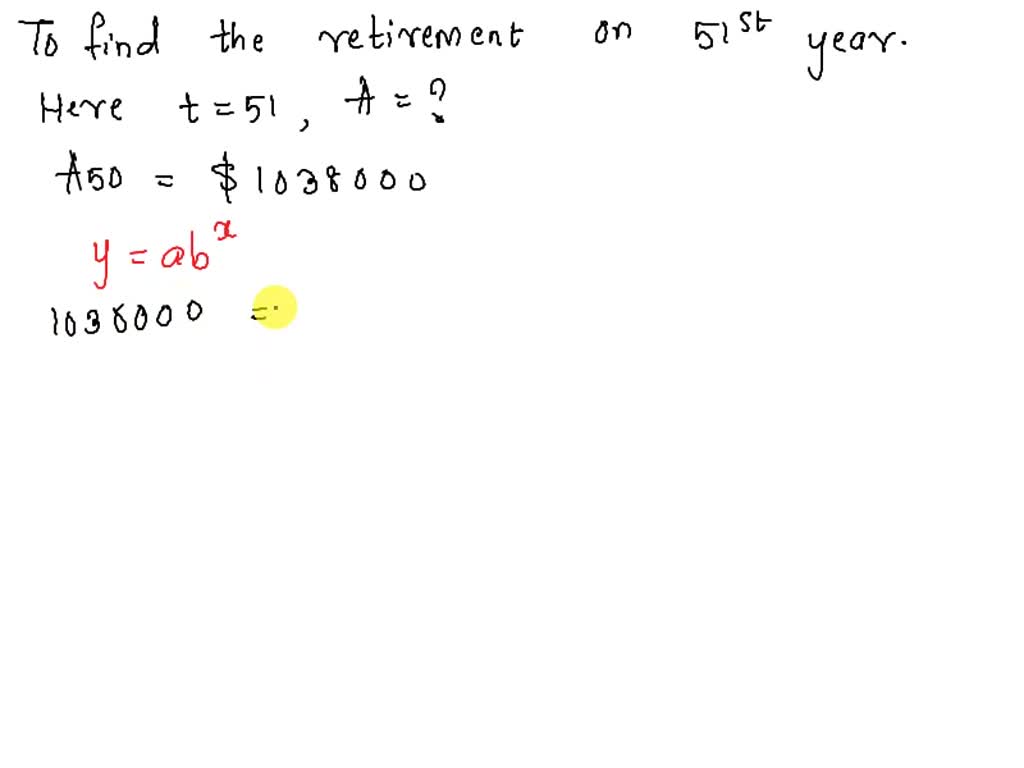 To find the retirement on 51st year.
Here t = 51, A = ?
A50 = $1038000
y = ab^x
1038000 =